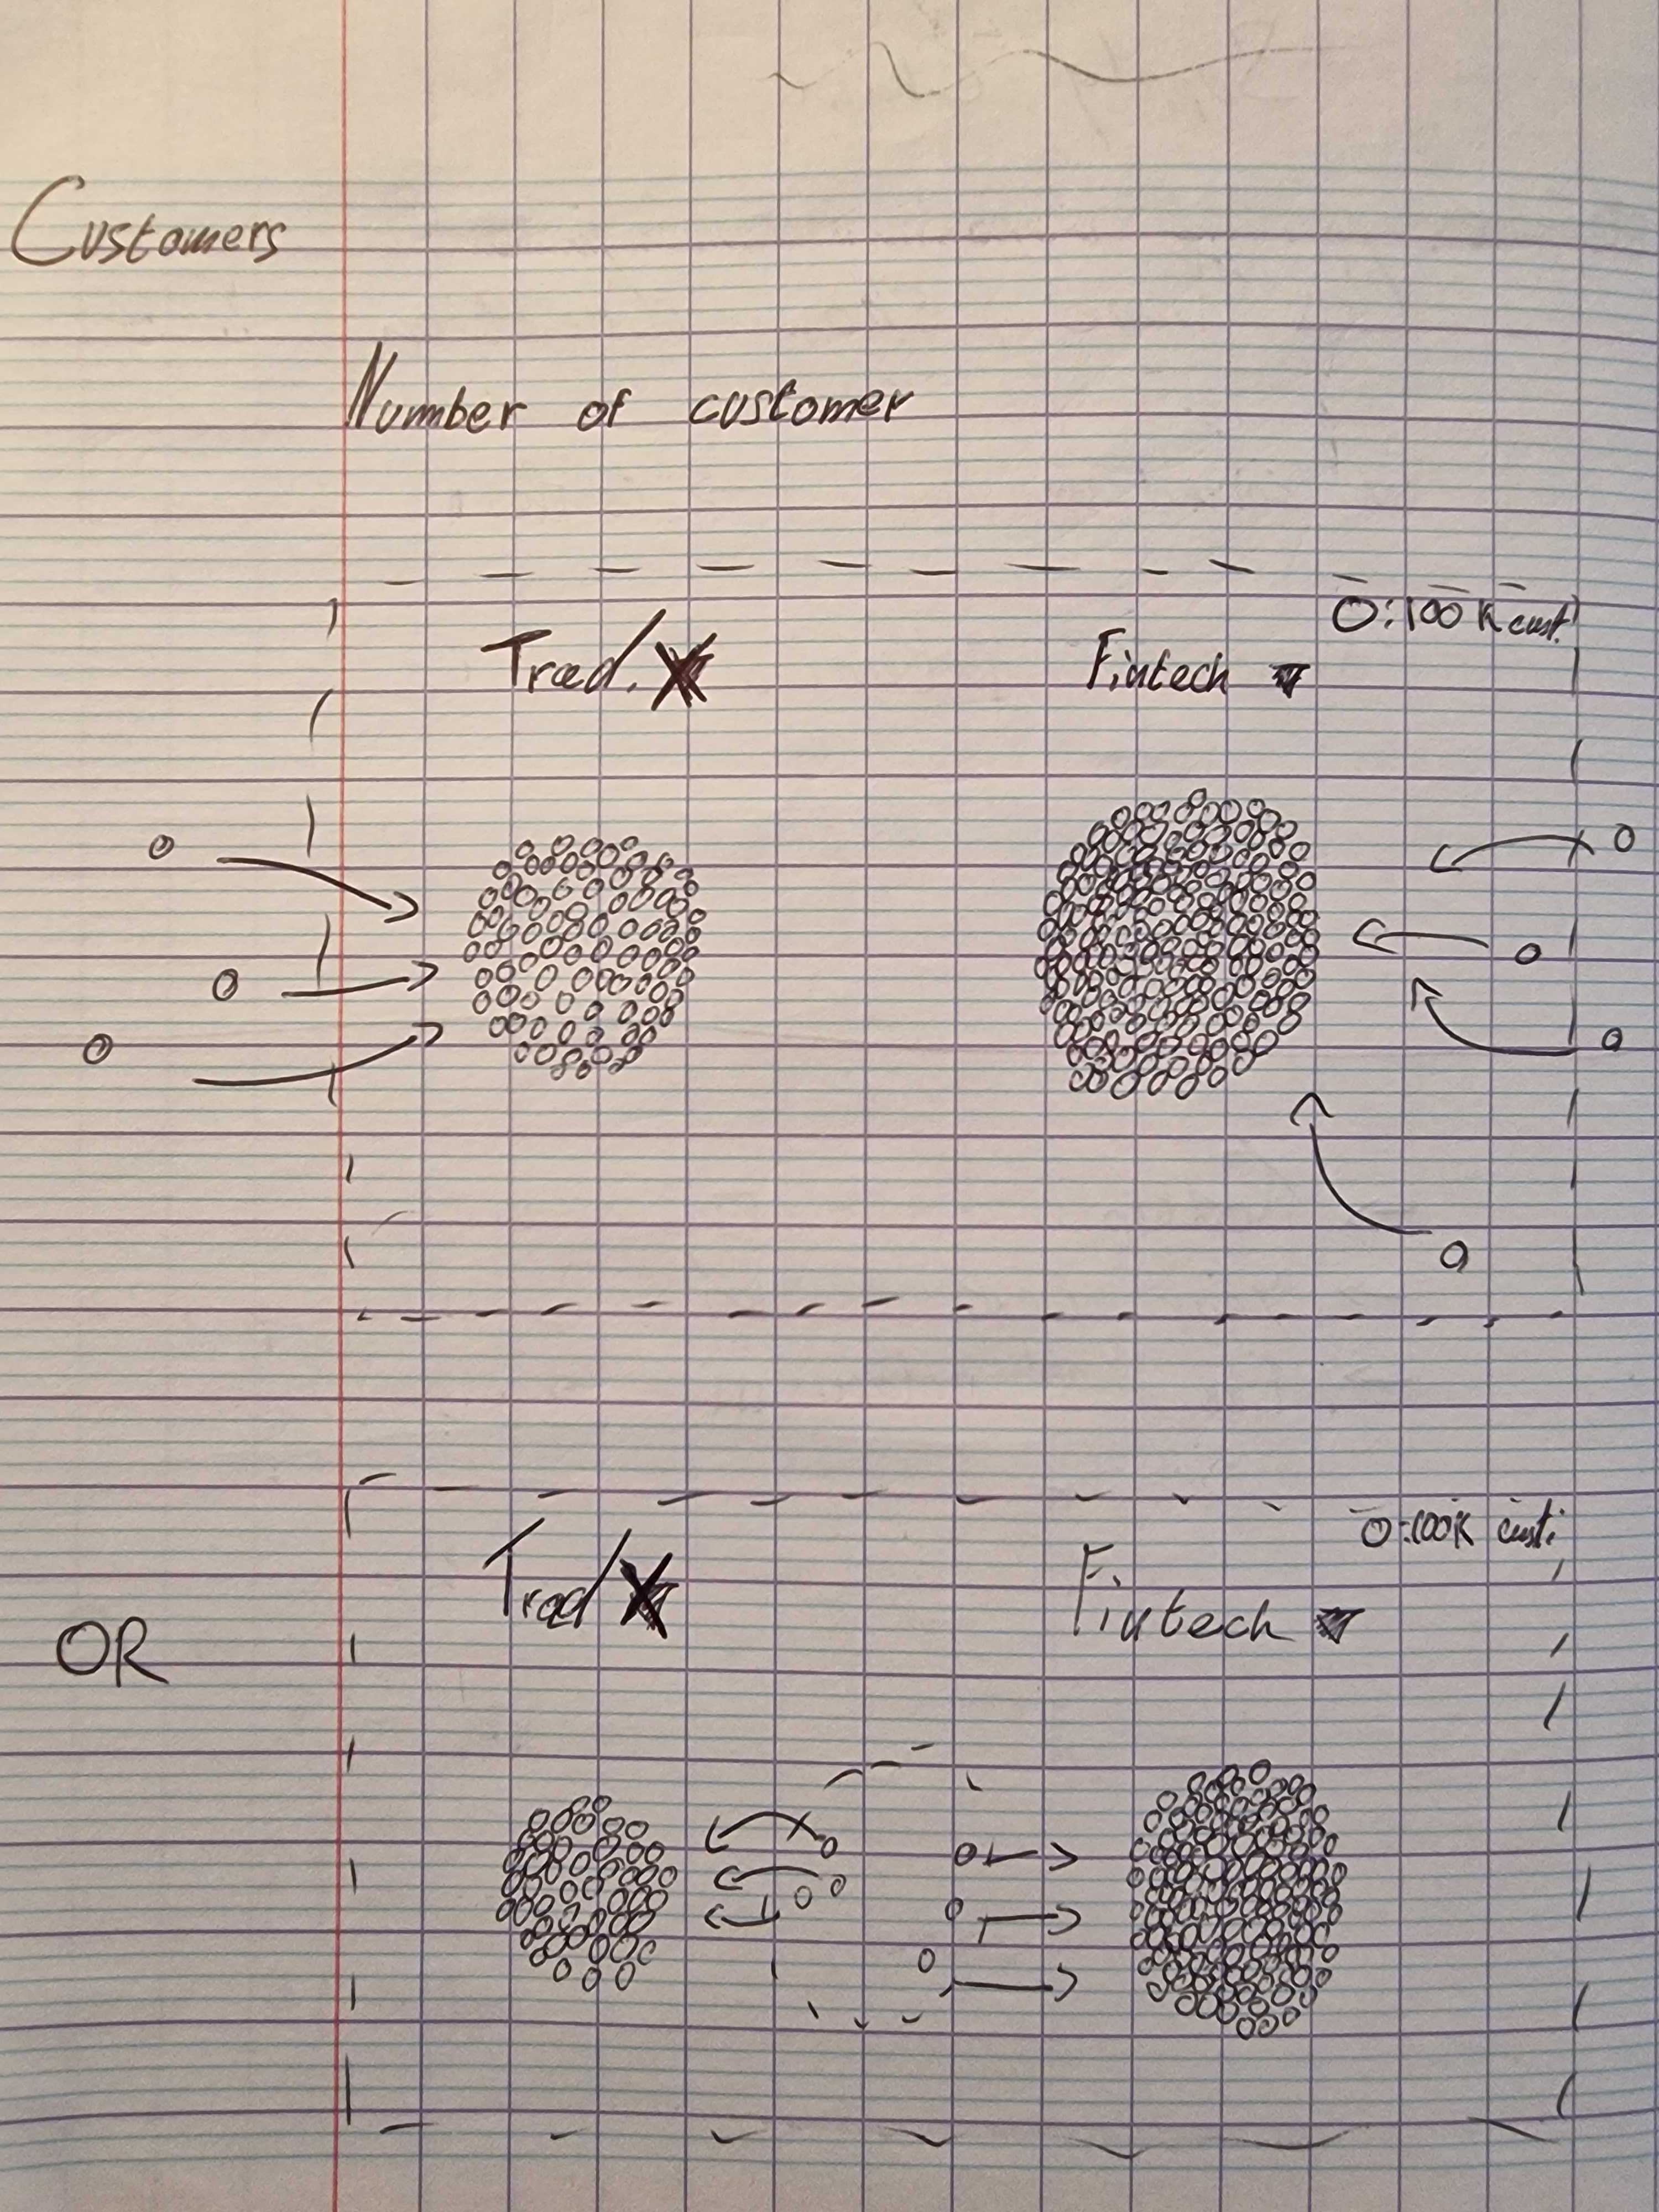 Customers
Number of customer
O: 100 K cust.
Trad.
Fintech
O: 100K cust.
Trad
Fintech
OR